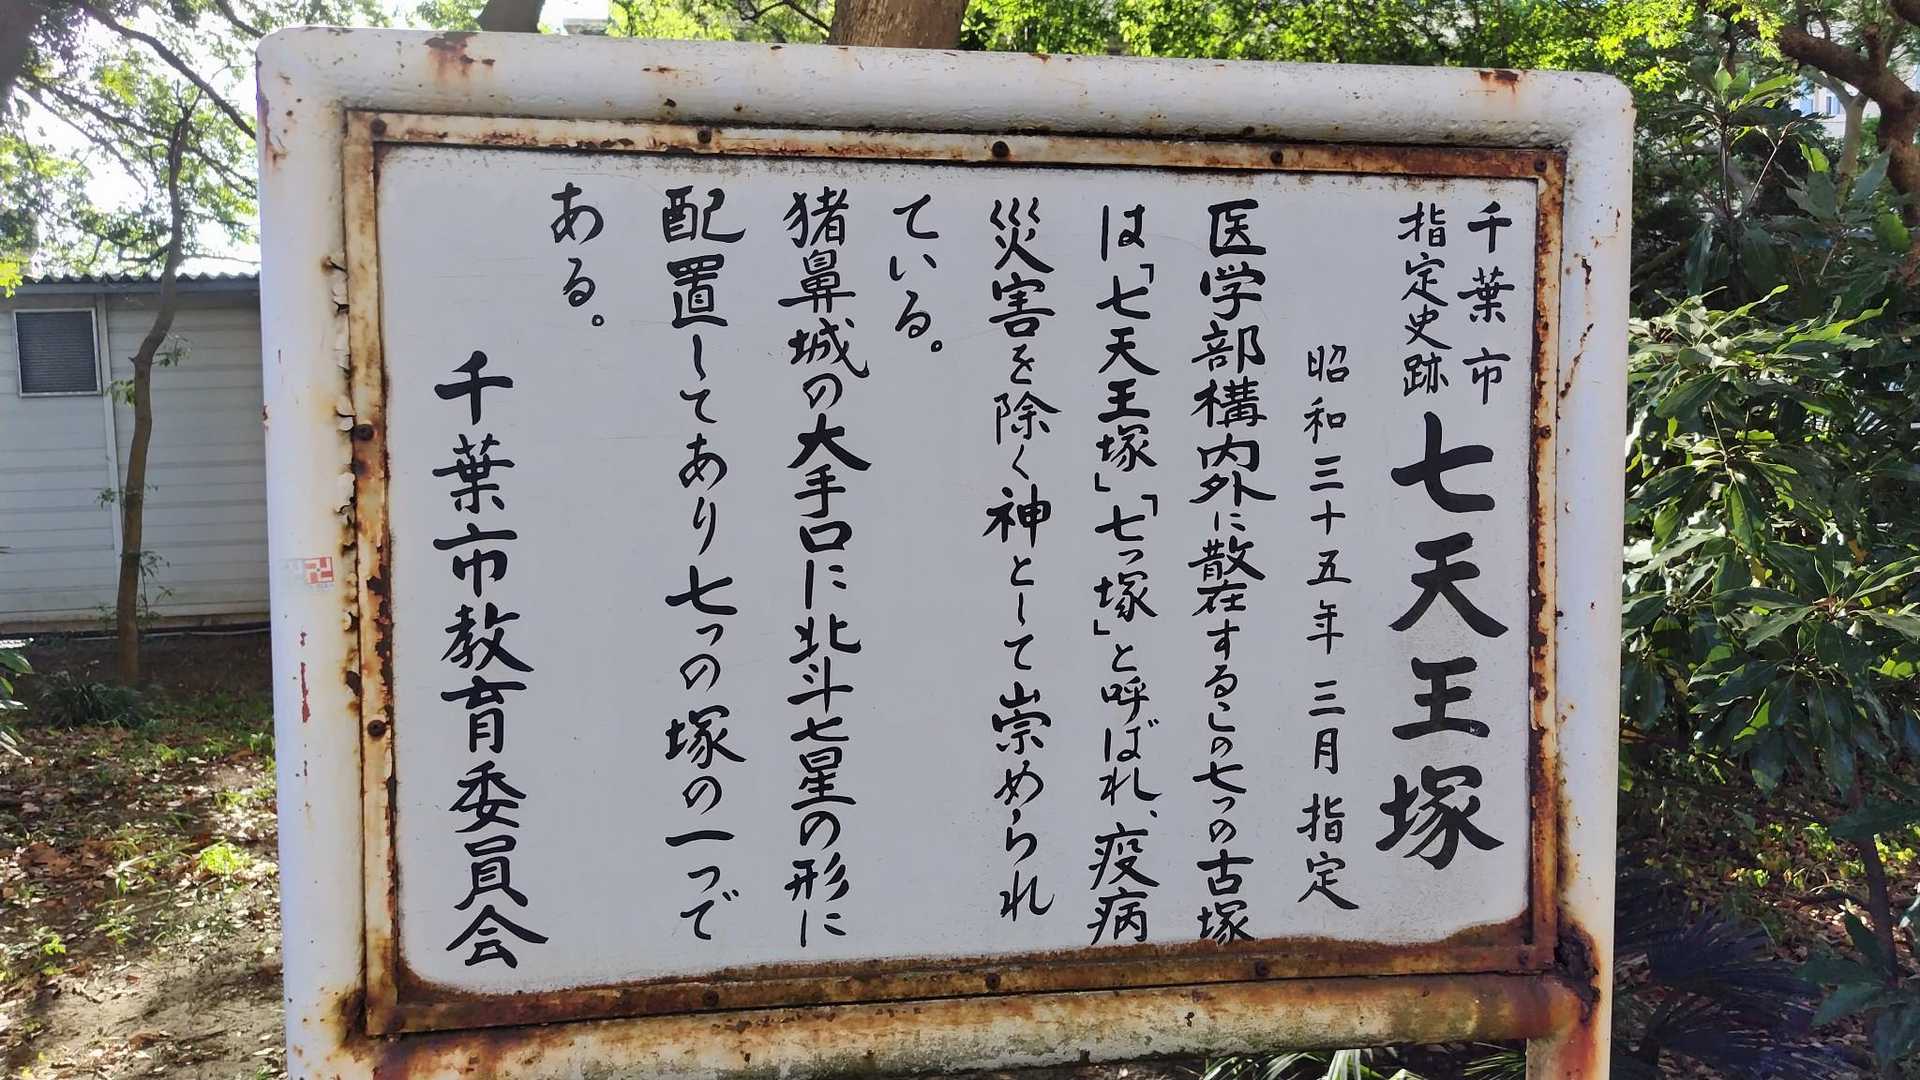 千葉市
指定史跡 七天王塚
昭和三十五年三月指定
医学部構内外に散在するこの七つの古塚
は、「七天王塚」「七つ塚」と呼ばれ、疫病
災害を除く神として崇められ
ている。
猪鼻城の大手口に北斗七星の形に
配置してあり七つの塚の一つで
ある。
千葉市教育委員会